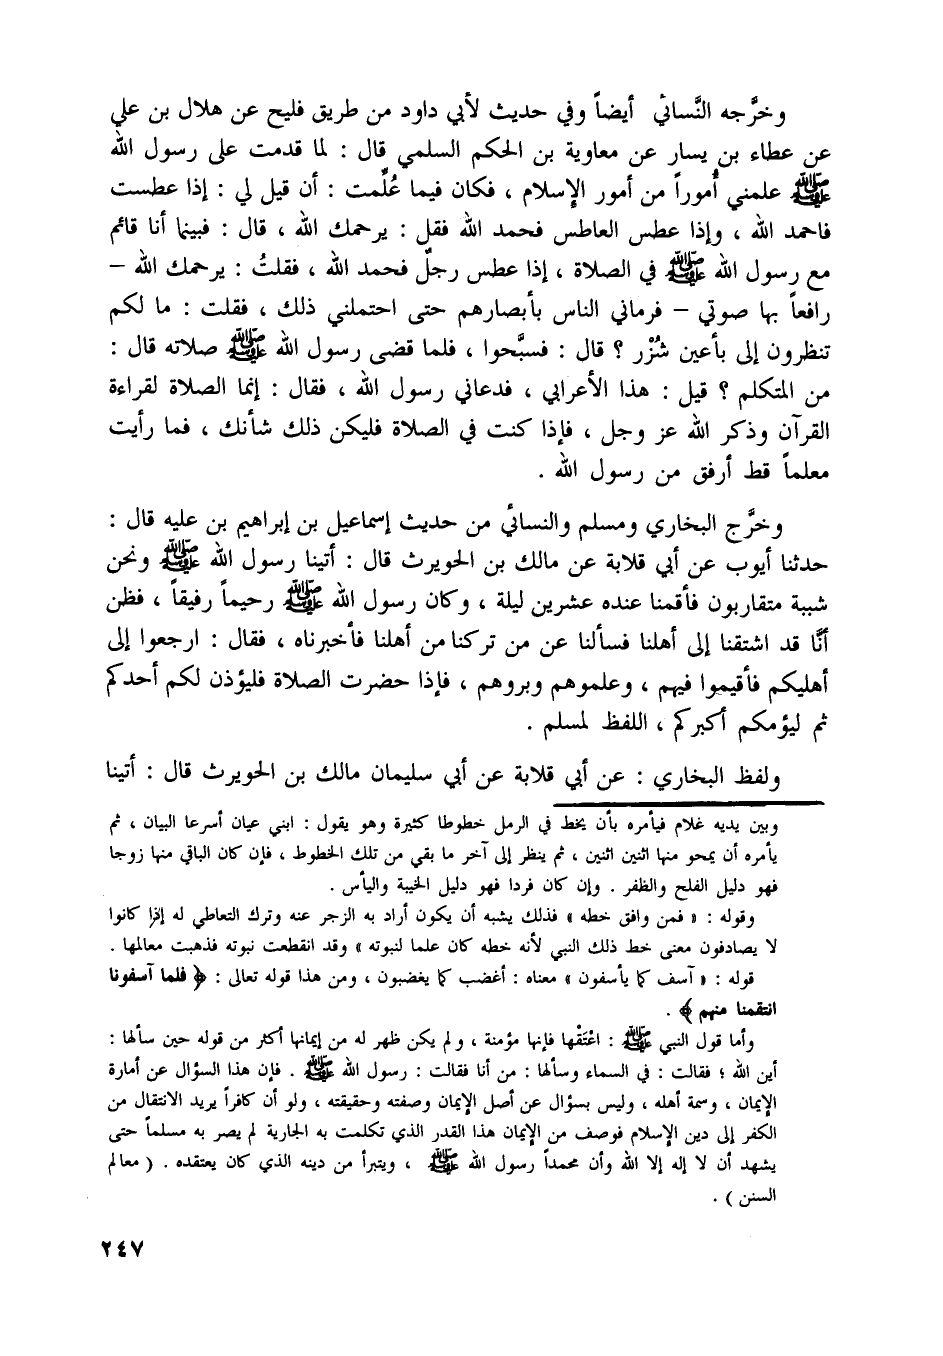 وخرَّجه النَّسائي أيضاً وفي حديث لأبي داود من طريق فليح عن هلال بن علي
عن عطاء بن يسار عن معاوية بن الحكم السلمي قال : لما قدمت على رسول الله
ﷺ علمني أُموراً من أمور الإسلام ، فكان فيما عُلِّمت : أن قيل لي : إذا عطست
فاحمد الله ، وإذا عطس العاطس فحمد الله فقل : يرحمك الله ، قال : فبينما أنا قائم
مع رسول الله ﷺ في الصلاة ، إذا عطس رجلٌ فحمد الله ، فقلتُ : يرحمك الله –
رافعاً بها صوتي – فرماني الناس بأبصارهم حتى احتملني ذلك ، فقلت : ما لكم
تنظرون إلي بأعين شُزْر ؟ قال : فسبَّحوا ، فلما قضى رسول الله ﷺ صلاته قال :
من المتكلم ؟ قيل : هذا الأعرابي ، فدعاني رسول الله ، فقال : إنما الصلاة لقراءة
القرآن وذكر الله عز وجل ، فإذا كنت في الصلاة فليكن ذلك شأنك ، فما رأيت
معلماً قط أرفق من رسول الله .
وخرَّج البخاري ومسلم والنسائي من حديث إسماعيل بن إبراهيم بن عليه قال :
حدثنا أيوب عن أبي قلابة عن مالك بن الحويرث قال : أتينا رسول الله ﷺ ونحن
شببة متقاربون فأقمنا عنده عشرين ليلة ، وكان رسول الله ﷺ رحيماً رفيقاً ، فظن
أنَّا قد اشتقنا إلى أهلنا فسألنا عن من تركنا من أهلنا فأخبرناه ، فقال : ارجعوا إلى
أهليكم فأقيموا فيهم ، وعلموهم وبروهم ، فإذا حضرت الصلاة فليؤذن لكم أحدكم
ثم ليؤمكم أكبركم ، اللفظ لمسلم .
ولفظ البخاري : عن أبي قلابة عن أبي سليمان مالك بن الحويرث قال : أتينا
وبين يديه غلام فيأمره بأن يخط في الرمل خطوطا كثيرة وهو يقول : ابني عيان أسرعا البيان ، ثم
يأمره أن يمحو منها اثنين اثنين ، ثم ينظر إلى آخر ما بقي من تلك الخطوط ، فإن كان الباقي منها زوجا
فهو دليل الفلح والظفر . وإن كان فردا فهو دليل الخيبة واليأس .
وقوله : « فمن وافق خطه » فذلك يشبه أن يكون أراد به الزجر عنه وترك التعاطي له إذا كانوا
لا يصادفون معنى خط ذلك النبي لأنه خطه كان علما لنبوته » وقد انقطعت نبوته فذهبت معالمها .
قوله : « آسف كما يأسفون » معناه : أغضب كما يغضبون ، ومن هذا قوله تعالى : ﴿ فلما آسفونا
انتقمنا منهم ﴾ .
وأما قول النبي ﷺ : اعْتَقْها فإنها مؤمنة ، ولم يكن ظهر له من إيمانها أكثر من قوله حين سألها :
أين الله ؛ فقالت : في السماء وسألها : من أنا فقالت : رسول الله ﷺ . فإن هذا السؤال عن أمارة
الإيمان ، وسمة أهله ، وليس بسؤال عن أصل الإيمان وصفته وحقيقته ، ولو أن كافراً يريد الانتقال من
الكفر إلى دين الإسلام فوصف من الإيمان هذا القدر الذي تكلمت به الجارية لم يصر به مسلماً حتى
يشهد أن لا إله إلا الله وأن محمداً رسول الله ﷺ ، ويتبرأ من دينه الذي كان يعتقده . ( معالم
السنن ) .
٢٤٧